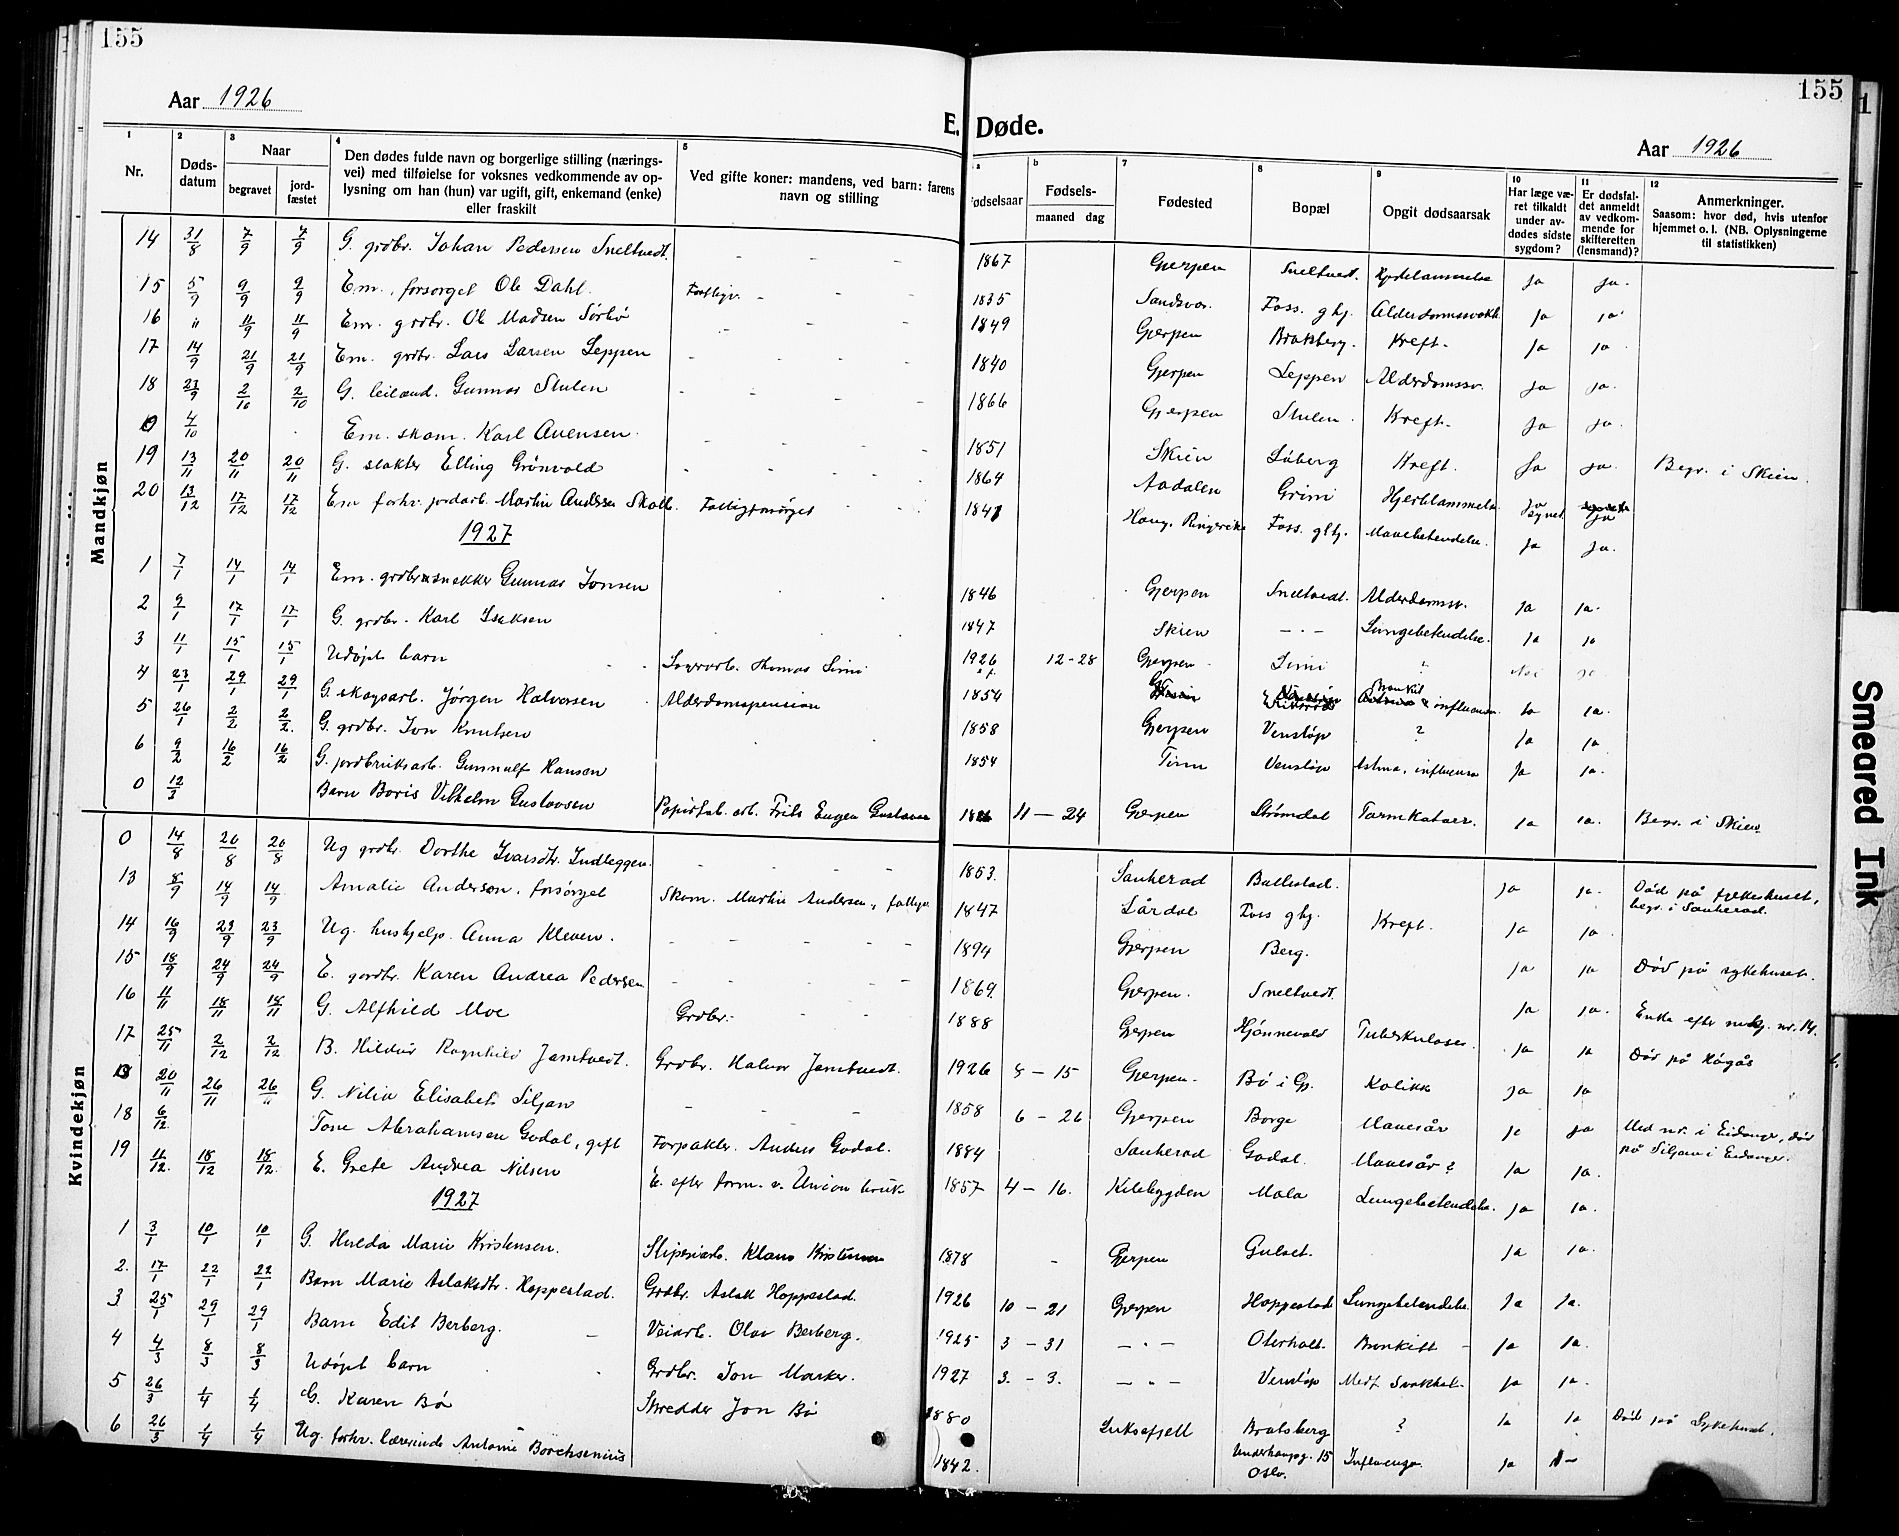 155
155
Aar 1926
E. Døde.
Aar 1926
1 Nr.
2 Døds-datum
3 Naar begravet jord-fæstet
4 Den dødes fulde navn og borgerlige stilling (nærings-vei) med tilføielse for voksnes vedkommende av op-lysning om han (hun) var ugift, gift, enkemand (enke) eller fraskilt
5 Ved gifte koner: mandens, ved barn: farens navn og stilling
a Fødselsaar
b Fødsels- maaned dag
7 Fødested
8 Bopæl
9 Opgit dødsaarsak
10 Har læge væ-ret tilkaldt under av-dødes sidste sygdom?
11 Er dødsfal-det anmeldt av vedkom-mende for skifteretten (lensmand)?
12 Anmerkninger. Saasom: hvor død, hvis utenfor hjemmet o. l. (NB. Oplysningerne til statistikken)
Mandkjøn
14 31/8 7/9 7/9 G. grdbr. Johan Pedersen Sneltvedt. 1867 Gjerpen Sneltvedt. Hjertelammelse Ja Ja.
15 5/9 9/9 9/9 Em., forsørget Ole Dahl. Fattigv. 1835 Sandsvær. Foss. ghj. Alderdomssvakh. Ja ja
16 " 11/9 11/9 Em. grdbr. Ole Madsen Sørbø 1849 Gjerpen Brakberg. Kreft. Ja ja
17 14/9 21/9 21/9 Em. grdbr. Lars Larsen Leppen 1840 Gjerpen Leppen Alderdomssv. Ja ja.
18 23/9 2/10 2/10 G. leilænd. Gunnar Stulen 1866 Gjerpen Stulen. Kreft. Ja ja.
0 4/10 Em. skom. Karl Evensen. 1851 Skien Løberg Kreft. Ja ja. Begr. i Skien.
19 13/11 20/11 20/11 G. slakter Elling Grønvold 1864 Aadalen Grini Hjertelammelse Ja
20 13/12 17/12 17/12 Em forhv. jordarb. Martin Andersen Skolb. Fattigforsørget 1841 Haug, Ringerike Foss. ghj. Mavebetendelse. Ja Ja.
1927
1 7/1 14/1 14/1 Em. grdbr. & snekker Gunnar Jonsen 1846 Gjerpen Sneltvedt. Alderdomssv. Ja ja.
2 9/1 17/1 17/1 G. grdbr. Karl Isaksen 1847 Skien - " - Lungebetendelse. Ja ja
3 11/1 15/1 15/1 Udøpt barn Sagarb. Thomas Limi 1926 12-28 Gjerpen Limi Nei ja
4 23/1 29/1 29/1 G. skogsarb. Jørgen Halvorsen Alderdomspension 1854 Bronkit & influensa Ja ja.
5 26/1 2/2 2/2. G. grdbr. Jon Knutsen 1858 Gjerpen Venstøp ? Ja ja
6 9/2 16/2 16/2 G. jordbruksarb. Gunnulf Hansen 1854 Tinn Venstøp Astma, influensa Ja ja.
0 12/3 Barn Boris Vilhelm Gustavsen Papirfab. arb. Frits Eugen Gustavsen 11 - 24 Gjerpen Strømdal Tarmkatarr. Ja ja. Begr. i Skien
Kvindekjøn
0 14/8 20/8 20/8 Ug grdbr. Dorthe Ivarsdtr. Indleggen. 1853. Sauherad Ballestad. Ja ja. Død på sykehuset, begr. i Sauherad.
13 8/9 14/9 14/9 Amalie Anderson, forsørget Skom. Martin Andersen, fattigv. 1847 Lårdal Foss ghj. Kreft. Ja ja.
14 16/9 23/9 23/9 Ug. hushjelp. Anna Kleven. 1894 Gjerpen Berg. Ja ja Død på sykehuset.
15 18/9 24/9 24/9 E. gårdbr. Karen Andrea Pedersen 1869. Gjerpen. Sneltvedt. Ja ja. Enke efter mkj. nr. 14.
16 11/11 18/11 18/11 G. Alfhild Moe Grdbr. 1888 Gjerpen Hjønnevald Tuberkulose. Ja ja Død på Hågås
17 25/11 2/12 2/12 B. Hildur Ragnhild Jamtvedt. Grdbr. Halvor Jamtvedt. 1926 8 - 15 Gjerpen. Bø i Gp. Kolikk Ja ja
20/11 26/11 26/11 G. Nilia Elisabet Siljan 1858 6 - 26 Gjerpen Borge Mavesår Ja ja Med nr. i Eidanger, død på Siljan i Eidanger.
18 6/12. Tone Abrahamsen Godal, gift Forpakter. Anders Godal. 1884 Sauherad Godal. Mavesår? Ja ja.
19 11/12. 18/12 18/12. E. Grete Andrea Nilsen E. efter form. v. Union bruk 1857 4 - 16. Kilebygden Mæla Lungebetendelse. Ja ja.
1927
1 3/1 10/1 10/1 G. Hulda Marie Kristensen. Sliperiarb. Klaus Kristensen 1878 - Gjerpen Gulset. Ja ja.
2. 17/1 22/1 22/1 Barn Marie Aslaksdtr. Hoppestad. Grdbr. Aslak Hoppestad. 1926 10 - 21 Gjerpen Hoppestad Lungebetendelse. Ja Ja.
3 25/1 29/1 29/1 Barn Edit Berberg. Veiarb. Olav Berberg. 1925 3 - 31 - " - Oterholt. Bronkitt Ja Ja.
4 4/3 8/3 8/3 Udøpt barn Grdbr. Jon Marker. 1927 3. - 3. - " - Venstøp Medf. Svakhet. Ja Ja.
5 26/3 1/4 1/4 G. Karen Bø Skredder Jon Bø 1880 Luksefjell Bratsberg ? Ja Ja Død på Sykehuset.
6 26/3 1/4 1/4 Ug. forhv. lærerinde Antonie Borchsenius 1842. Underhaugsg. 15 Oslo. Influensa. Ja
Smeared Ink